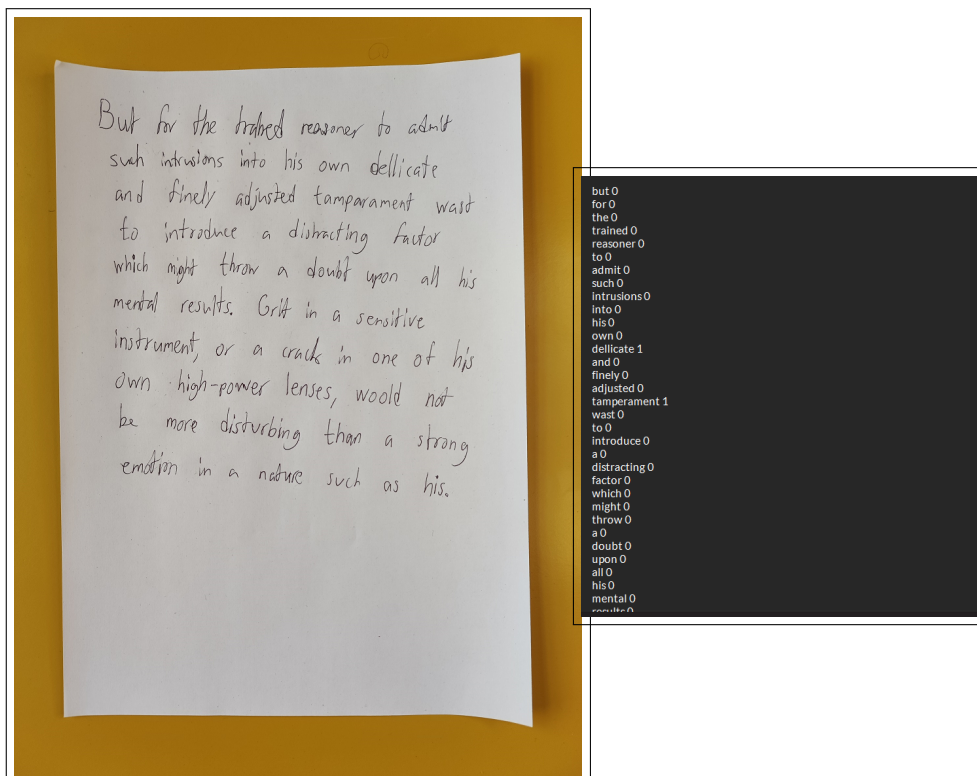 But for the trained reasoner to admit
such intrusions into his own dellicate
and finely adjusted tamparament wast
to introduce a distracting factor
which might throw a doubt upon all his
mental results. Grit in a sensitive
instrument, or a crack in one of his
own high-power lenses, woold not
be more disturbing than a strong
emotion in a nature such as his.
but 0
for 0
the 0
trained 0
reasoner 0
to 0
admit 0
such 0
intrusions 0
into 0
his 0
own 0
dellicate 1
and 0
finely 0
adjusted 0
tamperament 1
wast 0
to 0
introduce 0
a 0
distracting 0
factor 0
which 0
might 0
throw 0
a 0
doubt 0
upon 0
all 0
his 0
mental 0
results 0